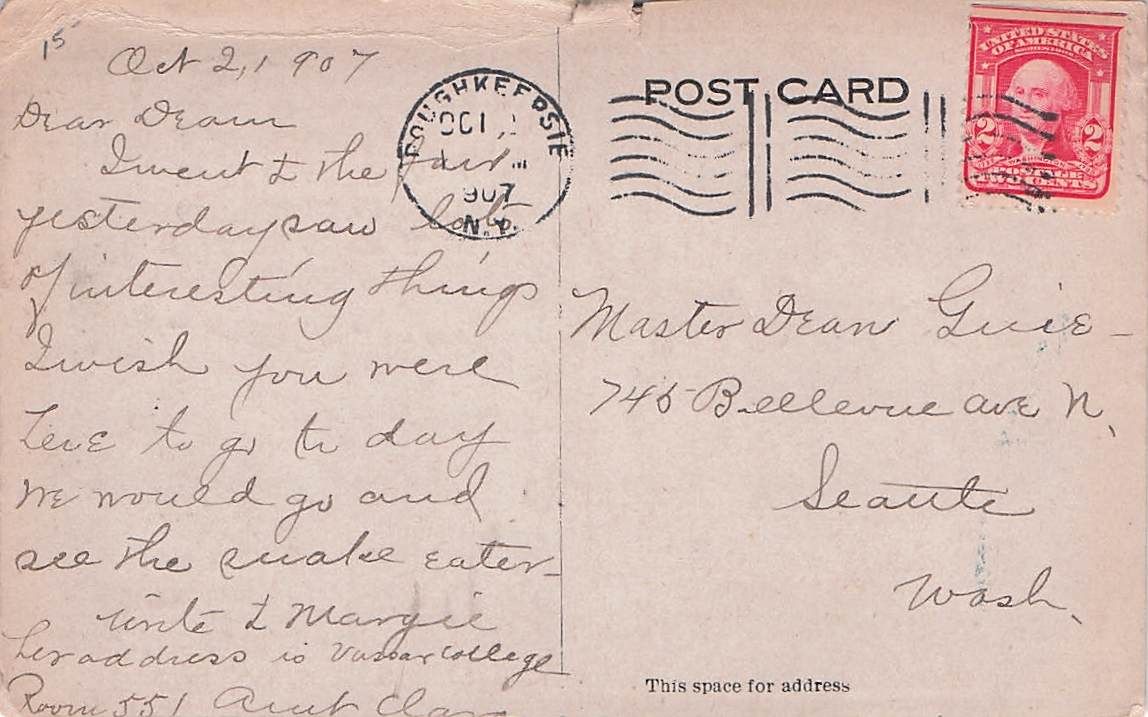 15
Oct 2, 1907
Dear Dean
I went to the Fair
yesterday saw lots
of interesting things
I wish you were
here to go to day
we would go and
see the snake eater
write to Margie
her address is Vassar College
Room 551 Aunt Clara
POUGHKEEPSIE
OCT
1907
N.Y.
POST CARD
UNITED STATES
OF AMERICA
2 2
WASHINGTON
TWO CENTS
Master Dean Guie
745 Bellevue Ave N.
Seattle
Wash.
This space for address